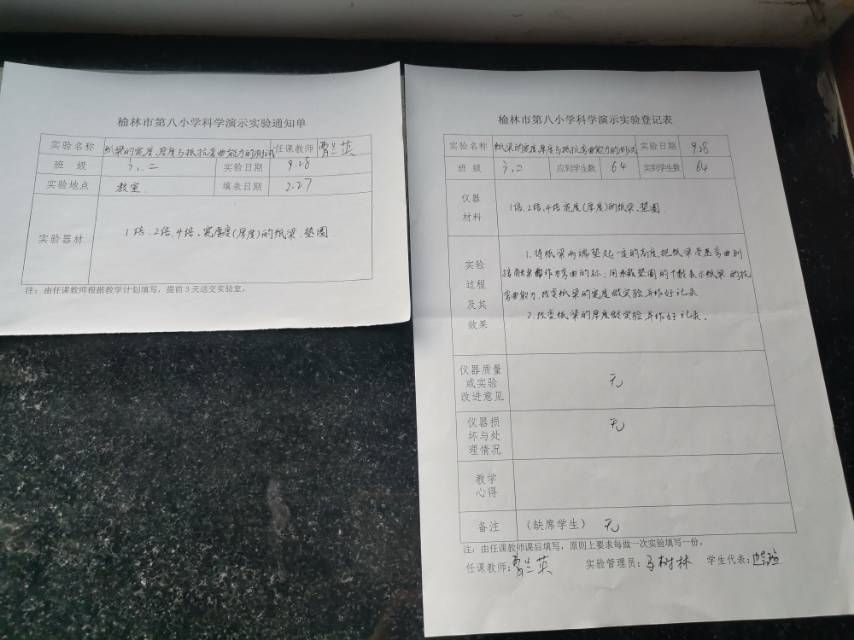 榆林市第八小学科学演示实验通知单
实验名称 纸梁的宽度、厚度与抵抗弯曲能力的测试 任课教师
班 级 实验日期 9.28
实验地点 教室 填表日期 2.27
实验器材 1倍、2倍、4倍、宽度(厚度)的纸梁、垫圈
注:由任课教师根据教学计划填写,提前3天送交实验室。
榆林市第八小学科学演示实验登记表
实验名称 纸梁的宽度、厚度与抵抗弯曲能力的测试 实验日期 9.28
班 级 应到学生数 64 实到学生数 64
仪器
材料
1倍、2倍、4倍宽度(厚度)的纸梁、垫圈
实验
过程
及其
效果
1.将纸梁两端垫起一定的高度,把纸梁受压弯曲到
接触桌面作为弯曲的标;用承载垫圈的个数表示纸梁的抗
弯曲能力,改变纸梁的宽度做实验并作好记录
2.改变纸梁的厚度做实验并作好记录。
仪器质量
或实验
改进意见
无
仪器损
坏与处
理情况
无
教学
心得
备注 (缺席学生) 无
注:由任课教师课后填写,原则上要求每做一次实验填写一份。
任课教师: 实验管理员:马树林 学生代表: